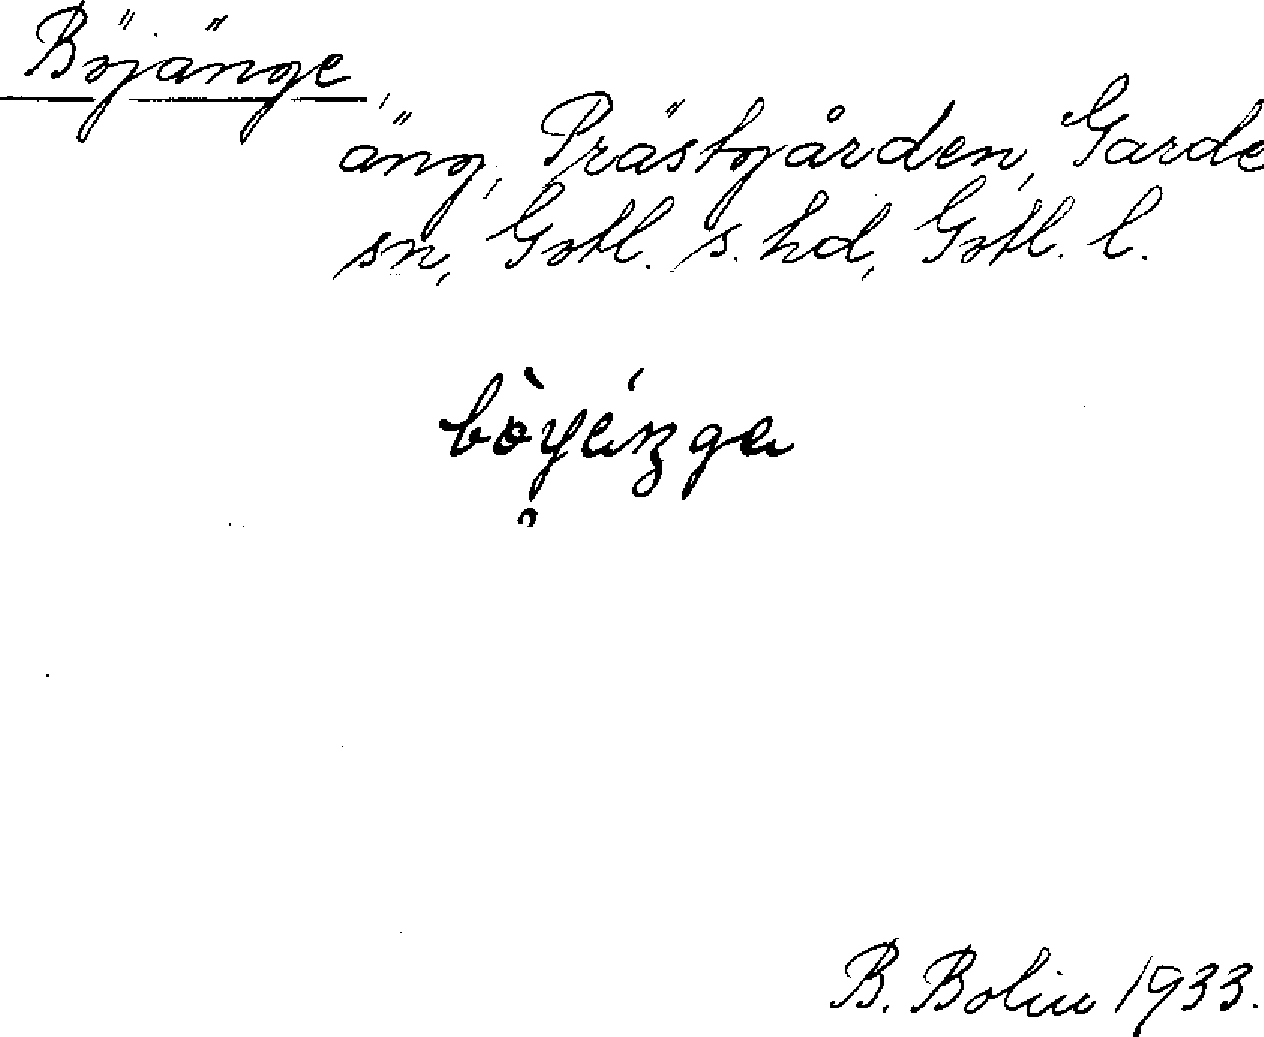 Böjänge,
äng, Prästgården, Garde
sn, Gotl. s. hd, Gotl. l.
B. Bolin 1933.